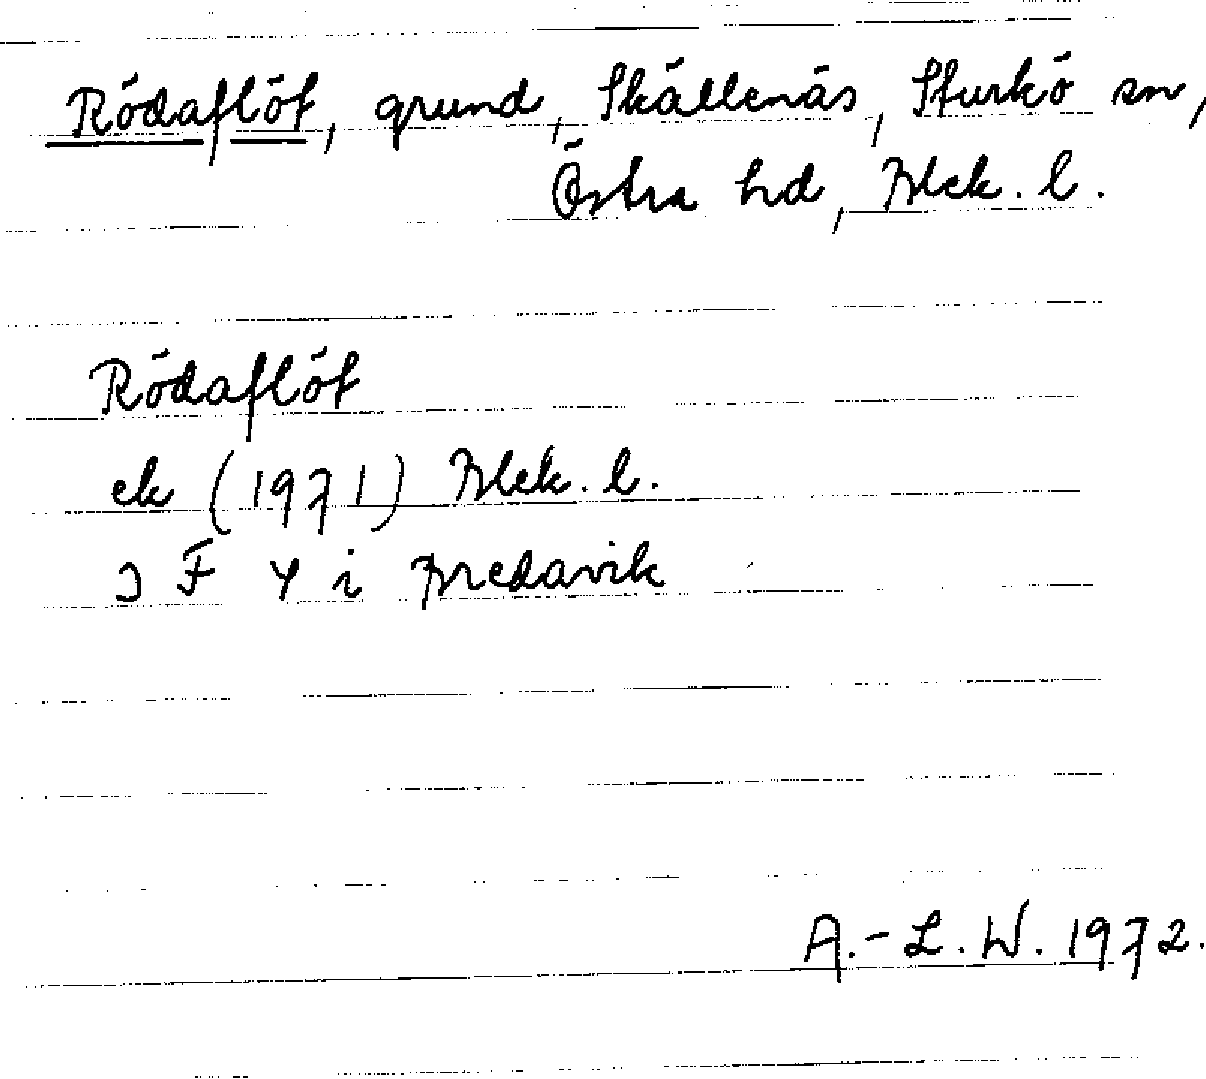 Rödaflöt, grund, Skällenäs, Sturkö sn,
Östra hd, Blek. l.
Rödaflöt
ek (1971) Blek. l.
J F Y i Bredavik
A.-L. W. 1972.